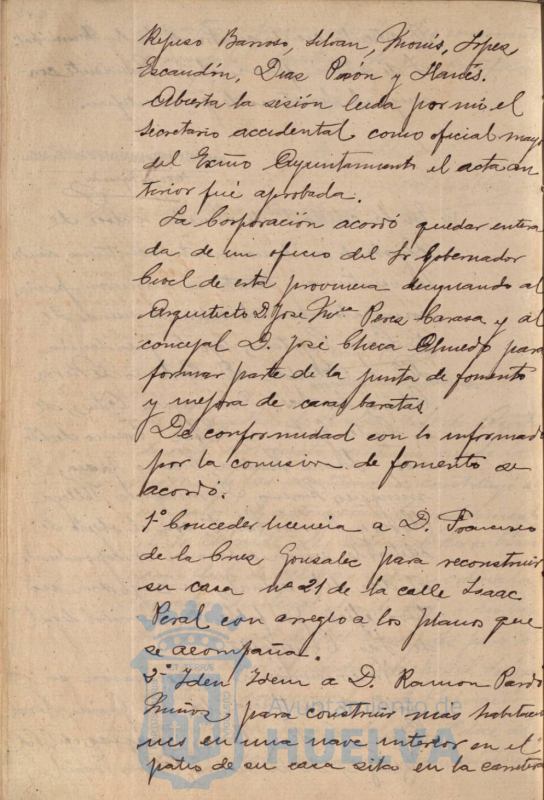 Repiso Barroso, Silvan, Monís, Lopez
Escandón, Dias Pavón y Hanés.
Abierta la sesión leida por mi el
Secretario accidental como oficial mayor
del Excmo Ayuntamiento el acta an-
terior fué aprobada.
La Corporación acordó quedar entera
da de un oficio del Sr Gobernador
Civil de esta provincia designando al
Arquitecto D. Jose Mria Perez Carasa y al
concejal D. José Checa Olmedo para
formar parte de la junta de fomento
y mejora de casas baratas.
De conformidad con lo informado
por la comision de fomento se
acordó.
1º Conceder licencia a D. Francisco
de la Cruz Gonzalez para reconstruir
su casa nº 21 de la calle Isaac
Peral con arreglo a los planos que
se acompaña.
2º Iden Idem a D. Ramon Pardo
Muñoz para construir mas habitacio
nes en una nave interior en el
patio de su casa sita en la carretera
Ayuntamiento de
HUELVA